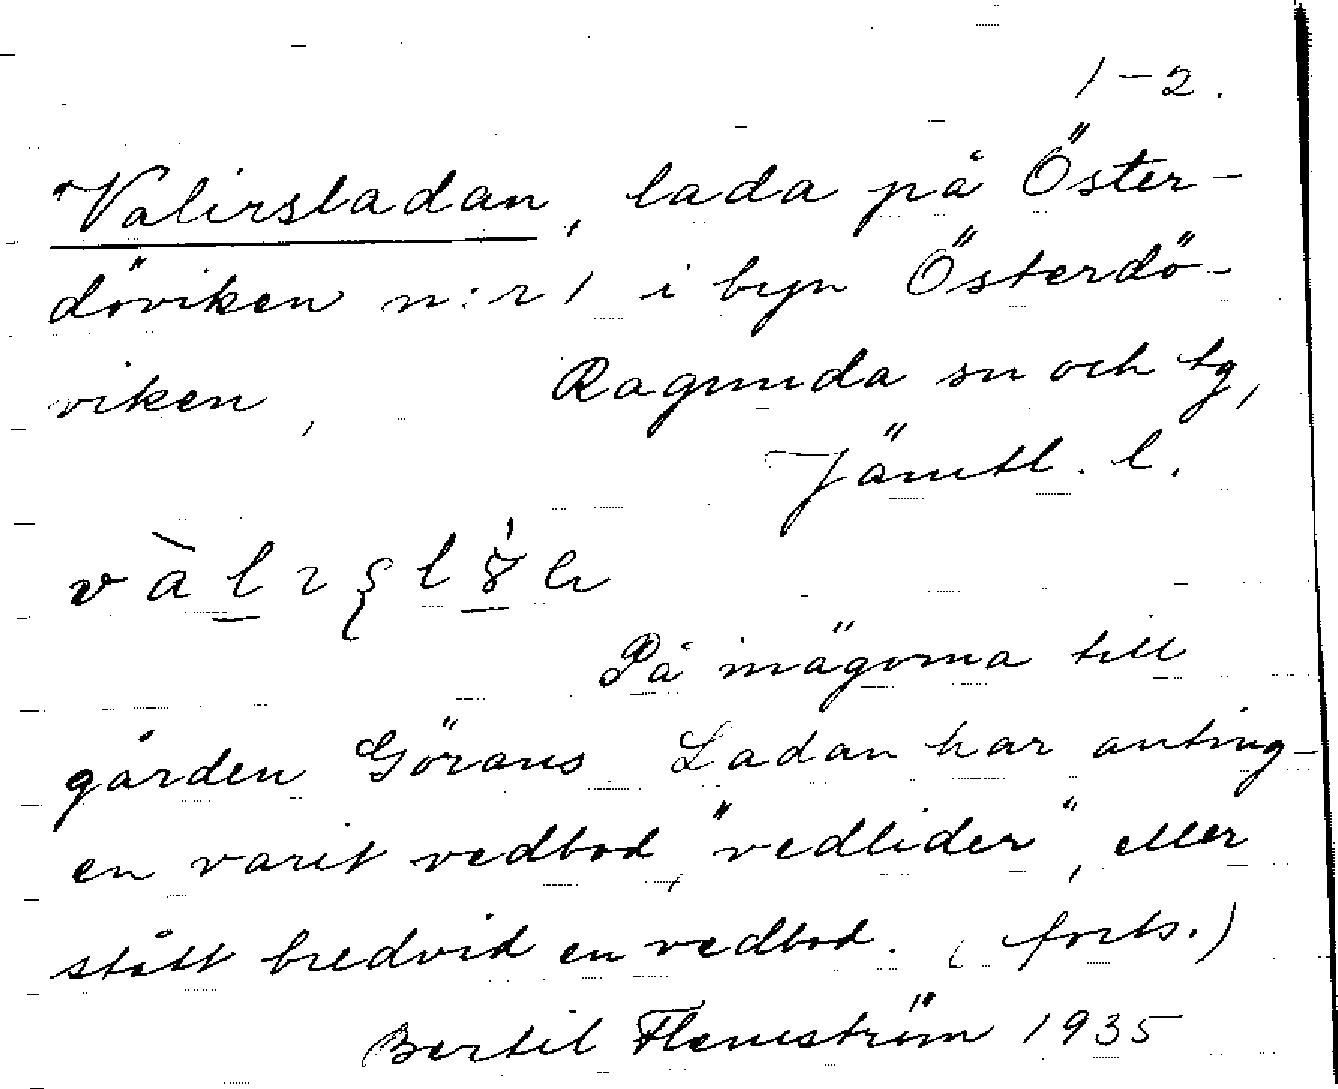 1-2.
"Valirsladan, lada på Öster-
döviken n:r 1 i byn Österdö-
viken, Ragunda sn och tg,
Jämtl. l.
På inägorna till
gården Görans Ladan har anting-
en varit vedbod, "vedlider", eller
stått bredvid en vedbod. (forts.)
Bertil Flemström 1935